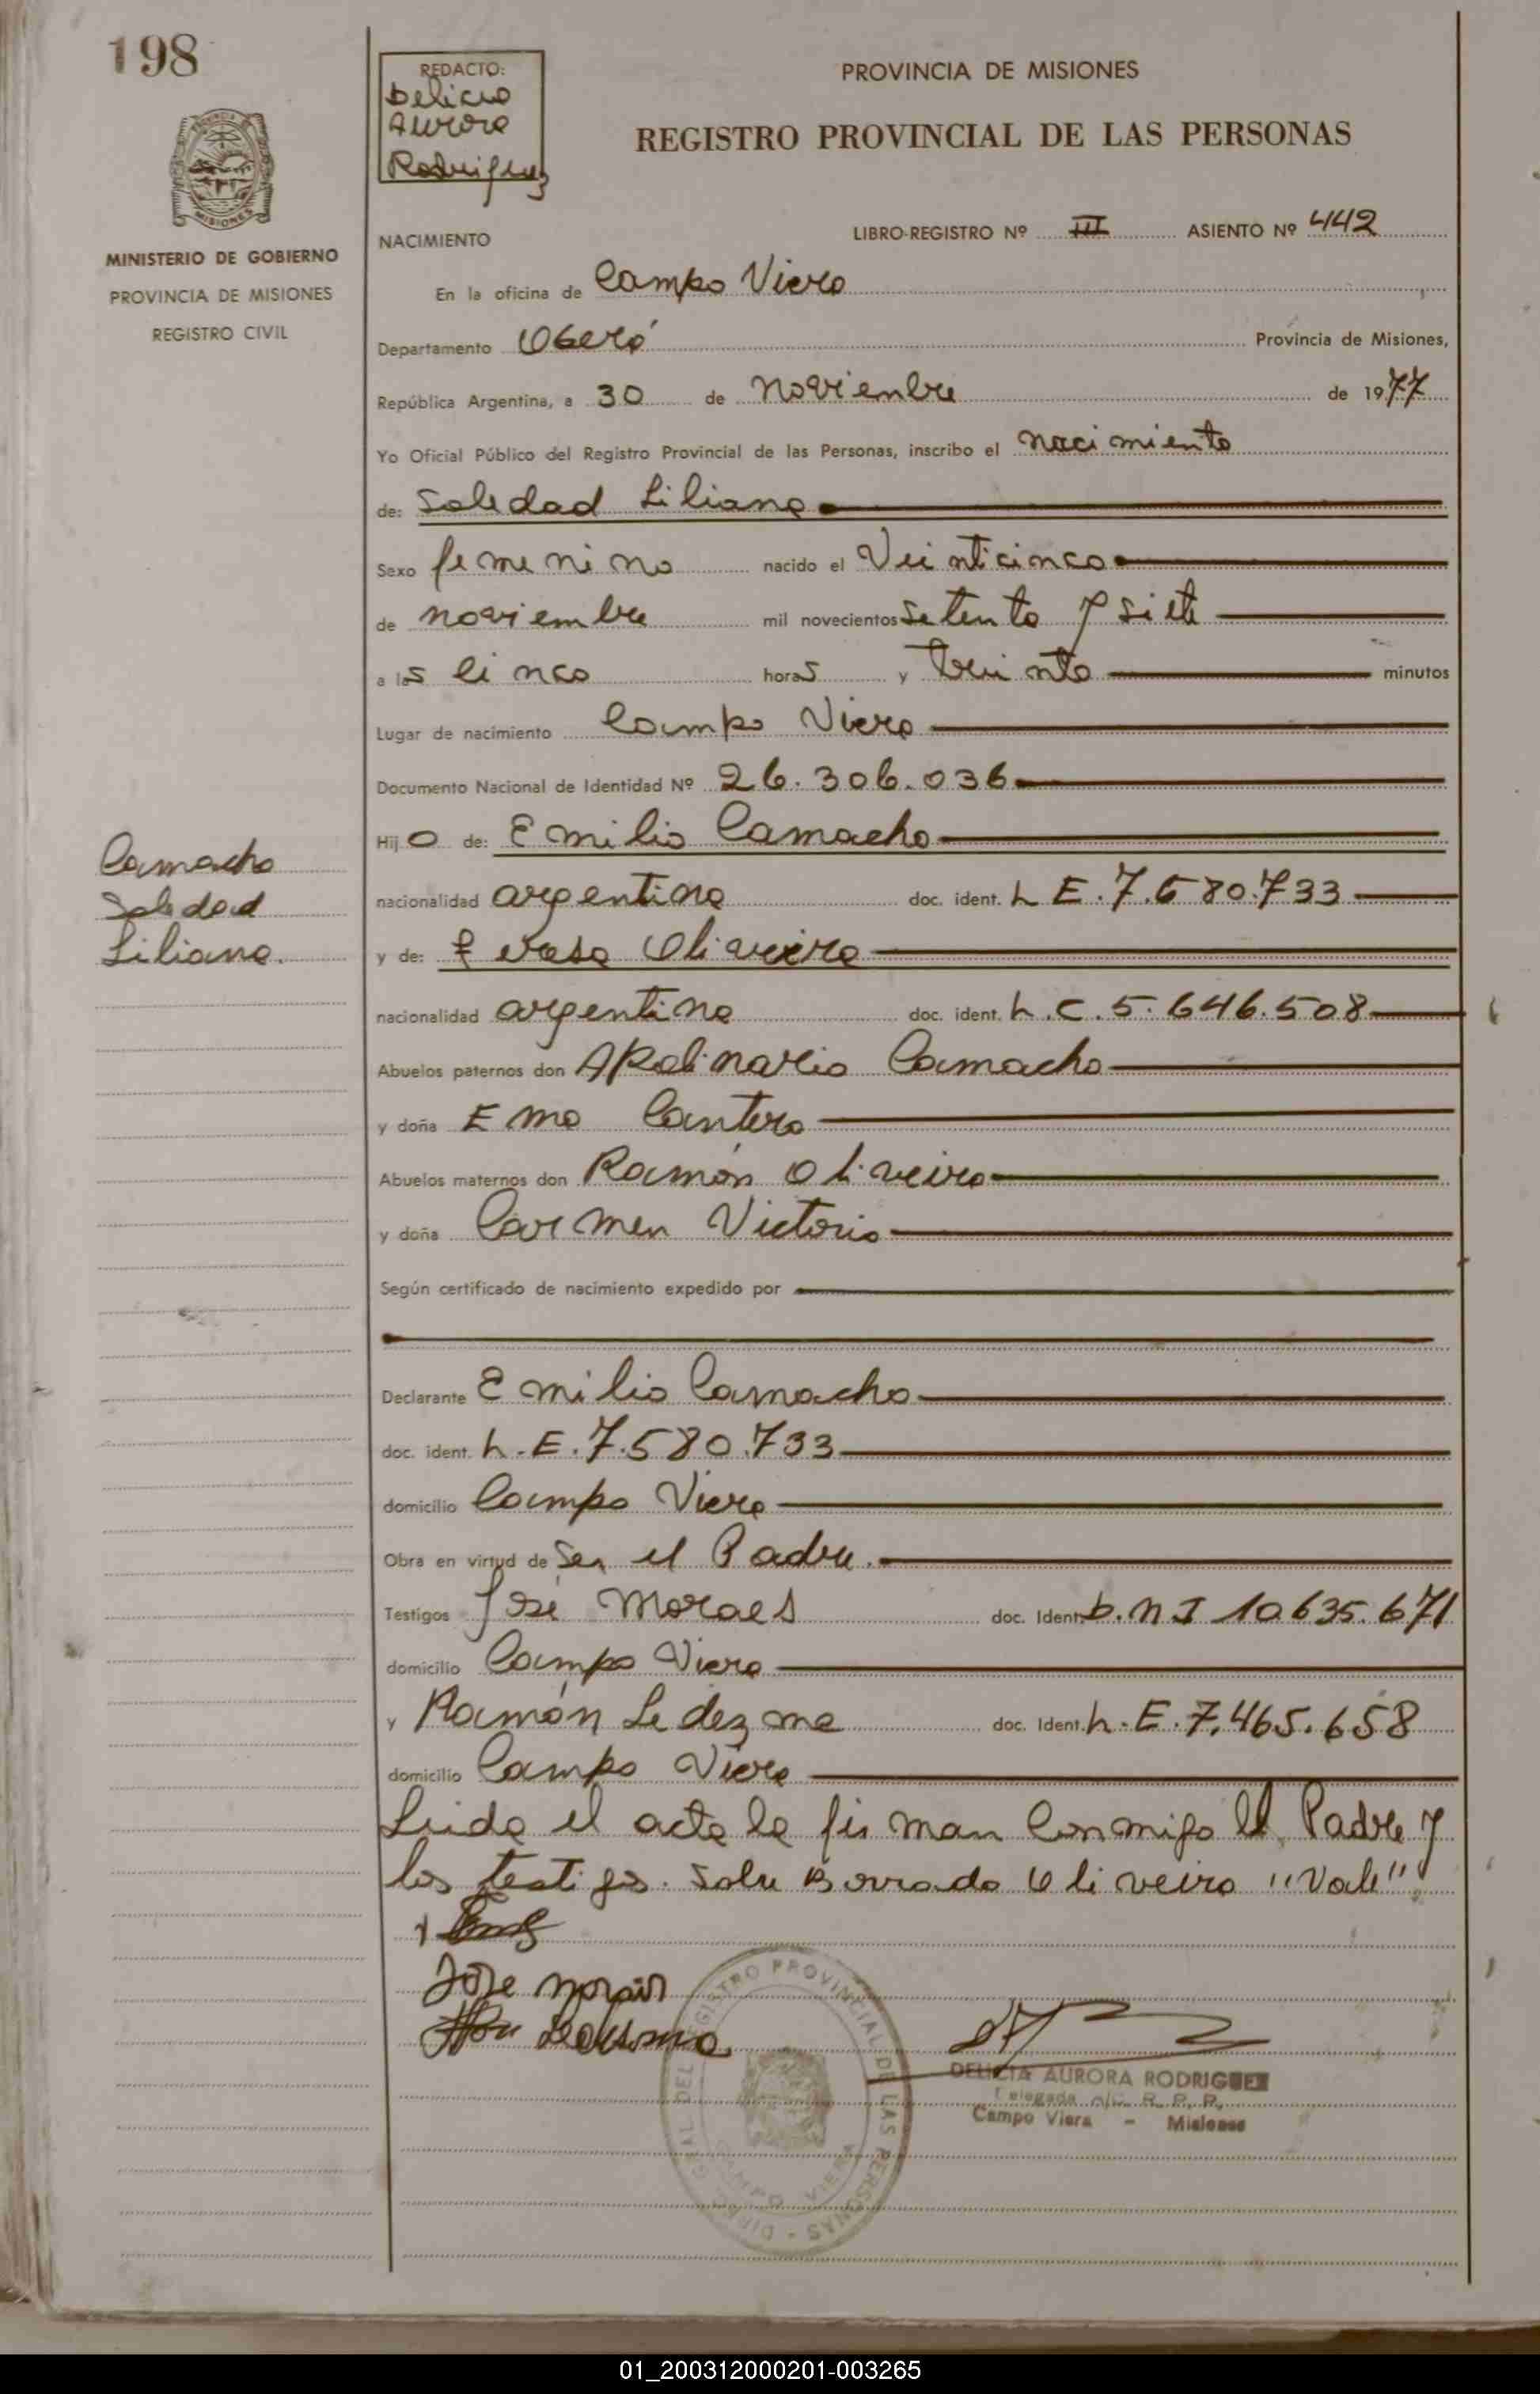 198
REDACTO:
Delicia
Aurora
Rodriguez
PROVINCIA DE MISIONES
REGISTRO PROVINCIAL DE LAS PERSONAS
MISIONES
MINISTERIO DE GOBIERNO
PROVINCIA DE MISIONES
REGISTRO CIVIL
NACIMIENTO LIBRO-REGISTRO Nº III ASIENTO Nº 442
En la oficina de Campo Viera
Departamento Oberá Provincia de Misiones,
República Argentina, a 30 de noviembre de 1977
Yo Oficial Público del Registro Provincial de las Personas, inscribo el nacimiento
de: Soledad Liliana
Sexo femenino nacido el Veinticinco
de noviembre mil novecientos setenta y siete
a las cinco horas y treinta minutos
Lugar de nacimiento Campo Viera
Documento Nacional de Identidad Nº 26.306.036
Hijo de: Emilio Camacho
nacionalidad argentina doc. ident. L E.7.580.733
y de: Teresa Oliveira
nacionalidad argentina doc. ident. L.C.5.646.508
Abuelos paternos don Apolinario Camacho
y doña Ema Cantero
Abuelos maternos don Ramón Oliveira
y doña Carmen Victoria
Según certificado de nacimiento expedido por
Declarante Emilio Camacho
doc. ident. L.E.7.580.733
domicilio Campo Viera
Obra en virtud de ser el Padre.
Testigos José Moraes doc. Ident. D.N.I 10.635.671
domicilio Campo Viera
y Ramón Ledezma doc. Ident. L.E.7.465.658
domicilio Campo Viera
Leida el acta la firman conmigo el Padre y
los testigos. Sobre Borrado Oliveira "Vale"
Jose
Ledesma
Camacho
Soledad
Liliana.
REGISTRO PROVINCIAL DE LAS PERSONAS
CAMPO VIERA
DELICIA AURORA RODRIGUEZ
Delegada a/c. R. P. P.
Campo Viera - Misiones
01_200312000201-003265